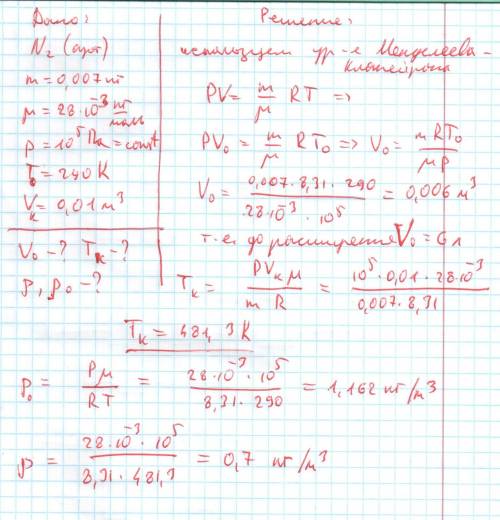 Дано:
N₂ (азот)
m = 0,007 кг
μ = 28·10⁻³ кг/моль
p = 10⁵ Па = const
T₀ = 290 K
Vк = 0,01 м³
V₀ - ? Tк - ?
ρ, ρ₀ - ?
Решение:
используем ур-е Менделеева-
Клапейрона
PV = m/μ RT =>
PV₀ = m/μ RT₀ => V₀ = mRT₀/μP
V₀ = 0,007·8,31·290/28·10⁻³·10⁵ = 0,006 м³
т.е. до расширения V₀ = 6 л
Tк = PVкμ/mR = 10⁵·0,01·28·10⁻³/0,007·8,31
Tк = 481,3 K
ρ₀ = Pμ/RT = 28·10⁻³·10⁵/8,31·290 = 1,162 кг/м³
ρ = 28·10⁻³·10⁵/8,31·481,3 = 0,7 кг/м³